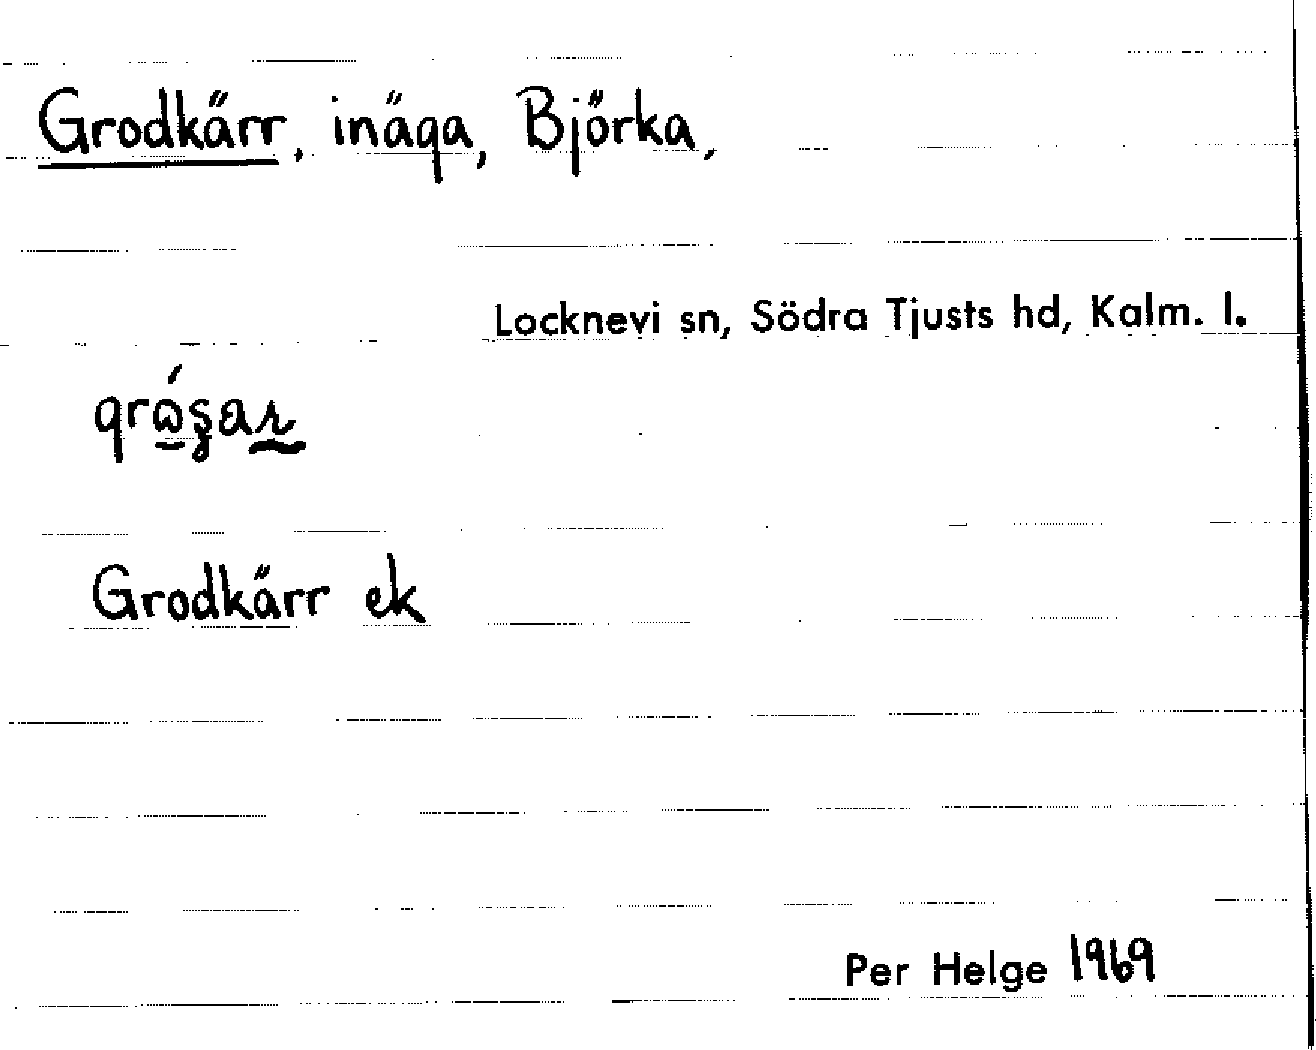 Grodkärr, inäga, Björka,
Locknevi sn, Södra Tjusts hd, Kalm. l.
Grodkärr ek
Per Helge 1969